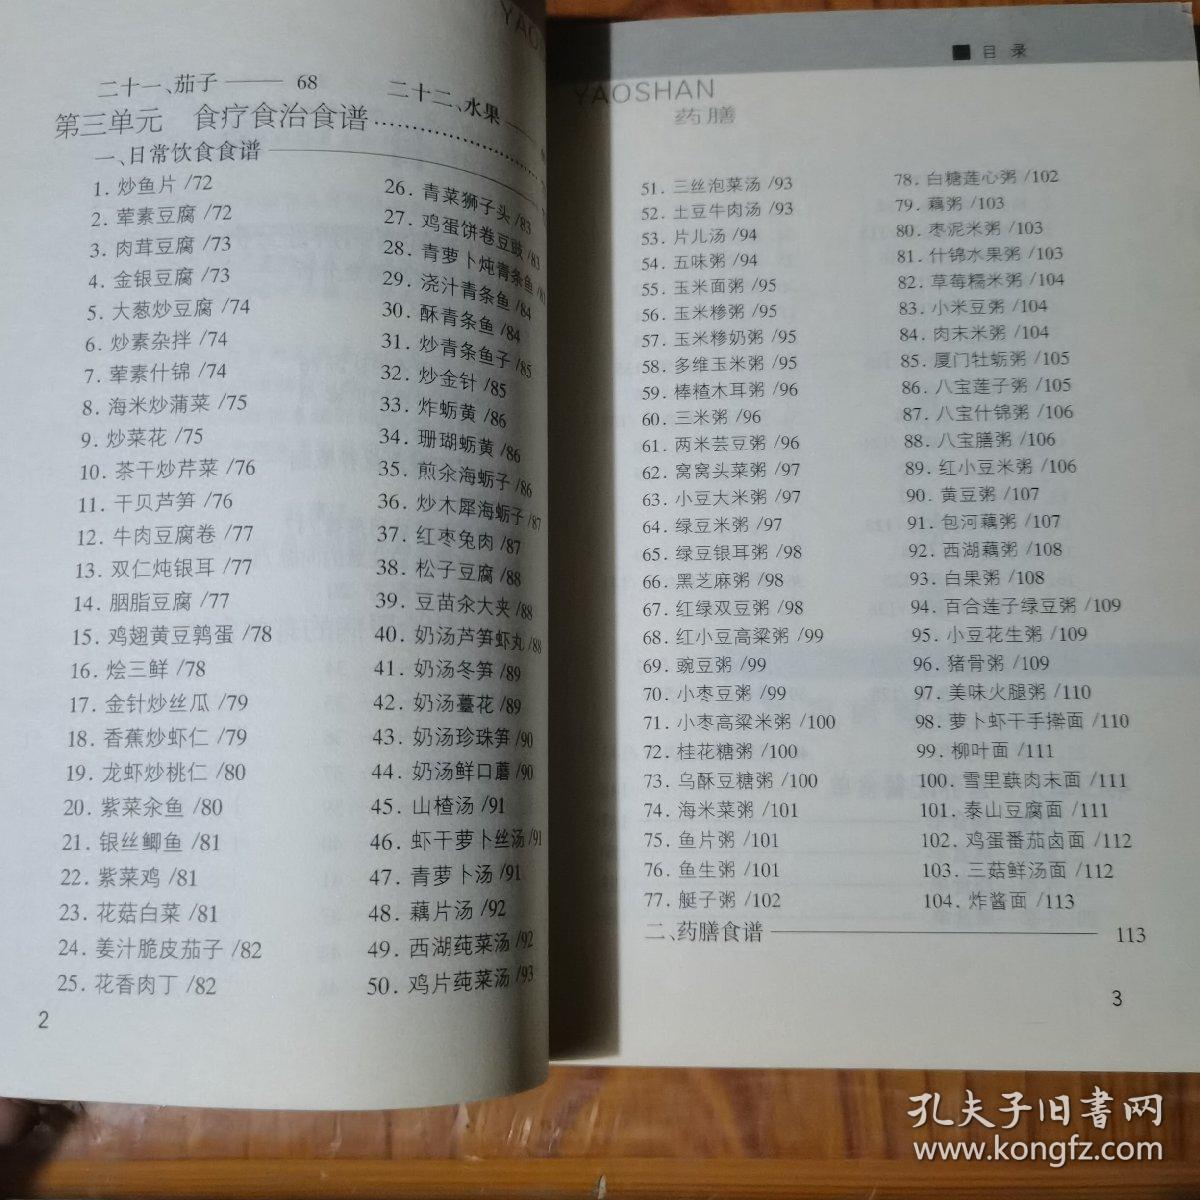 二十一、茄子 —— 68
二十二、水果 ——
第三单元 食疗食治食谱
一、日常饮食食谱
1. 炒鱼片 /72
2. 荤素豆腐 /72
3. 肉茸豆腐 /73
4. 金银豆腐 /73
5. 大葱炒豆腐 /74
6. 炒素杂拌 /74
7. 荤素什锦 /74
8. 海米炒蒲菜 /75
9. 炒菜花 /75
10. 茶干炒芹菜 /76
11. 干贝芦笋 /76
12. 牛肉豆腐卷 /77
13. 双仁炖银耳 /77
14. 胭脂豆腐 /77
15. 鸡翅黄豆鹑蛋 /78
16. 烩三鲜 /78
17. 金针炒丝瓜 /79
18. 香蕉炒虾仁 /79
19. 龙虾炒桃仁 /80
20. 紫菜汆鱼 /80
21. 银丝鲫鱼 /81
22. 紫菜鸡 /81
23. 花菇白菜 /81
24. 姜汁脆皮茄子 /82
25. 花香肉丁 /82
26. 青菜狮子头 /83
27. 鸡蛋饼卷豆豉 /83
28. 青萝卜炖青条鱼
29. 浇汁青条鱼 /84
30. 酥青条鱼 /84
31. 炒青条鱼子 /85
32. 炒金针 /85
33. 炸蛎黄 /86
34. 珊瑚蛎黄 /86
35. 煎汆海蛎子 /86
36. 炒木犀海蛎子 /87
37. 红枣兔肉 /87
38. 松子豆腐 /88
39. 豆苗汆大夹 /88
40. 奶汤芦笋虾丸 /88
41. 奶汤冬笋 /89
42. 奶汤薹花 /89
43. 奶汤珍珠笋 /90
44. 奶汤鲜口蘑 /90
45. 山楂汤 /91
46. 虾干萝卜丝汤 /91
47. 青萝卜汤 /91
48. 藕片汤 /92
49. 西湖莼菜汤 /92
50. 鸡片莼菜汤 /93
2
■ 目 录
YAOSHAN
药膳
51. 三丝泡菜汤 /93
52. 土豆牛肉汤 /93
53. 片儿汤 /94
54. 五味粥 /94
55. 玉米面粥 /95
56. 玉米糁粥 /95
57. 玉米糁奶粥 /95
58. 多维玉米粥 /95
59. 棒糙木耳粥 /96
60. 三米粥 /96
61. 两米芸豆粥 /96
62. 窝窝头菜粥 /97
63. 小豆大米粥 /97
64. 绿豆米粥 /97
65. 绿豆银耳粥 /98
66. 黑芝麻粥 /98
67. 红绿双豆粥 /98
68. 红小豆高粱粥 /99
69. 豌豆粥 /99
70. 小枣豆粥 /99
71. 小枣高粱米粥 /100
72. 桂花糖粥 /100
73. 乌酥豆糖粥 /100
74. 海米菜粥 /101
75. 鱼片粥 /101
76. 鱼生粥 /101
77. 艇子粥 /102
78. 白糖莲心粥 /102
79. 藕粥 /103
80. 枣泥米粥 /103
81. 什锦水果粥 /103
82. 草莓糯米粥 /104
83. 小米豆粥 /104
84. 肉末米粥 /104
85. 厦门牡蛎粥 /105
86. 八宝莲子粥 /105
87. 八宝什锦粥 /106
88. 八宝膳粥 /106
89. 红小豆米粥 /106
90. 黄豆粥 /107
91. 包河藕粥 /107
92. 西湖藕粥 /108
93. 白果粥 /108
94. 百合莲子绿豆粥 /109
95. 小豆花生粥 /109
96. 猪骨粥 /109
97. 美味火腿粥 /110
98. 萝卜虾干手擀面 /110
99. 柳叶面 /111
100. 雪里蕻肉末面 /111
101. 泰山豆腐面 /111
102. 鸡蛋番茄卤面 /112
103. 三菇鲜汤面 /112
104. 炸酱面 /113
二、药膳食谱 —— 113
3
孔夫子旧书网
www.kongfz.com